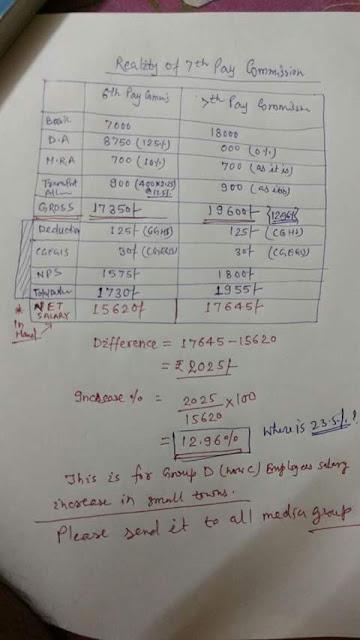 Reality of 7th Pay Commission
6th Pay Commis 7th Pay Commission
Basic 7000 18000
D.A 8750 (125%) 000 (0%)
H.R.A 700 (10%) 700 (as it is)
Transport Allow 900 (400×2.25) 900 (as it is)
GROSS 17350/- 19600/- (12.96%)
Deduction 125/- (CGHS) 125/- (CGHS)
CGEGIS 30/- (CGEGIS) 30/- (CGEGIS)
NPS 1575/- 1800/-
1730/- 1955/-
* NET SALARY 15620/- 17645/-
In Hand
Difference = 17645 - 15620
= ₹ 2025/-
Increase % = 2025 / 15620 × 100
= 12.96% Where is 23.5%?
This is for Group D (now C) Employees salary
increase in small towns.
Please send it to all media group